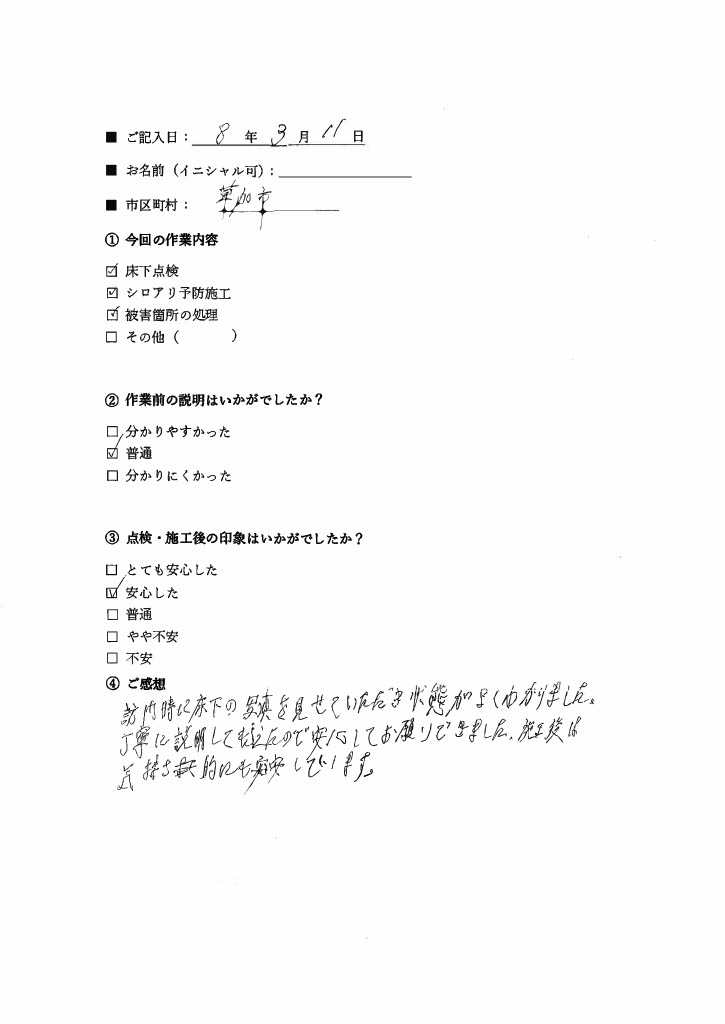 ■ ご記入日： 8 年 3 月 11 日
■ お名前（イニシャル可）：
■ 市区町村： 草加市
① 今回の作業内容
☑ 床下点検
☑ シロアリ予防施工
☑ 被害箇所の処理
☐ その他（ ）
② 作業前の説明はいかがでしたか？
☐ 分かりやすかった
☑ 普通
☐ 分かりにくかった
③ 点検・施工後の印象はいかがでしたか？
☐ とても安心した
☑ 安心した
☐ 普通
☐ やや不安
☐ 不安
④ ご感想
訪問時に床下の写真を見せていただき状態がよくわかりました。
丁寧に説明してもらえたので安心してお願いできました。施工後は
気持ち 的にも しています。